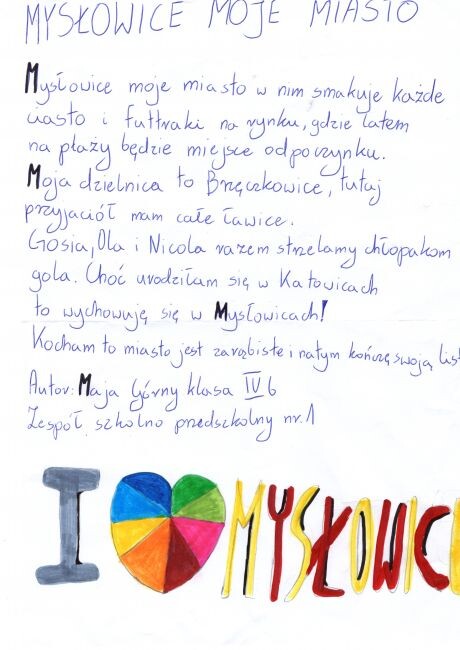 MYSŁOWICE MOJE MIASTO
Mysłowice moje miasto w nim smakuje każde
ciasto i futtraki na rynku, gdzie latem
na plaży będzie miejsce odpoczynku.
Moja dzielnica to Brzęczkowice, tutaj
przyjaciół mam całe ławice.
Gosia, Ola i Nicola razem strzelamy chłopakom
gola. Choć urodziłam się w Katowicach
to wychowuję się w Mysłowicach!
Kocham to miasto jest zarąbiste i natym kończę swoją list
Autor: Maja Górny klasa IV b
Zespół szkolno przedszkolny nr.1
I MYSŁOWICE